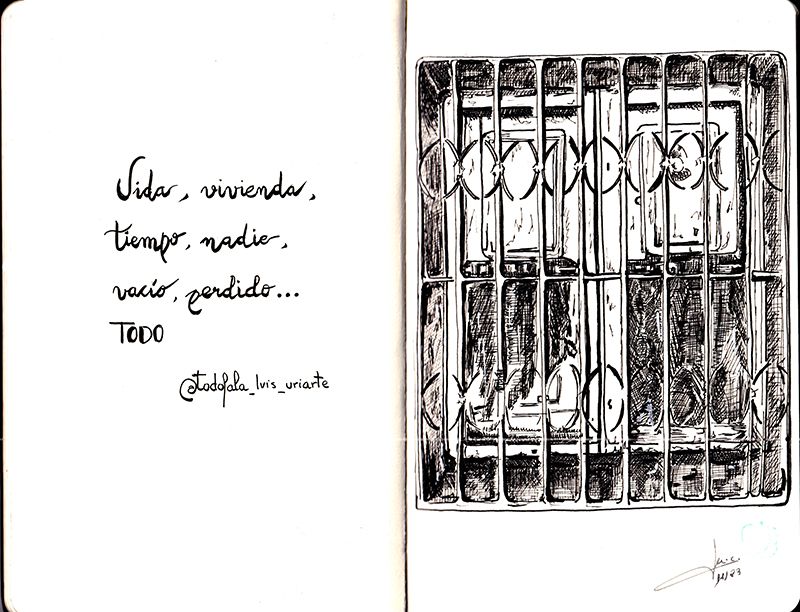 Vida, vivienda,
tiempo, nadie,
vacío, perdido...
TODO
@todofala_luis_uriarte